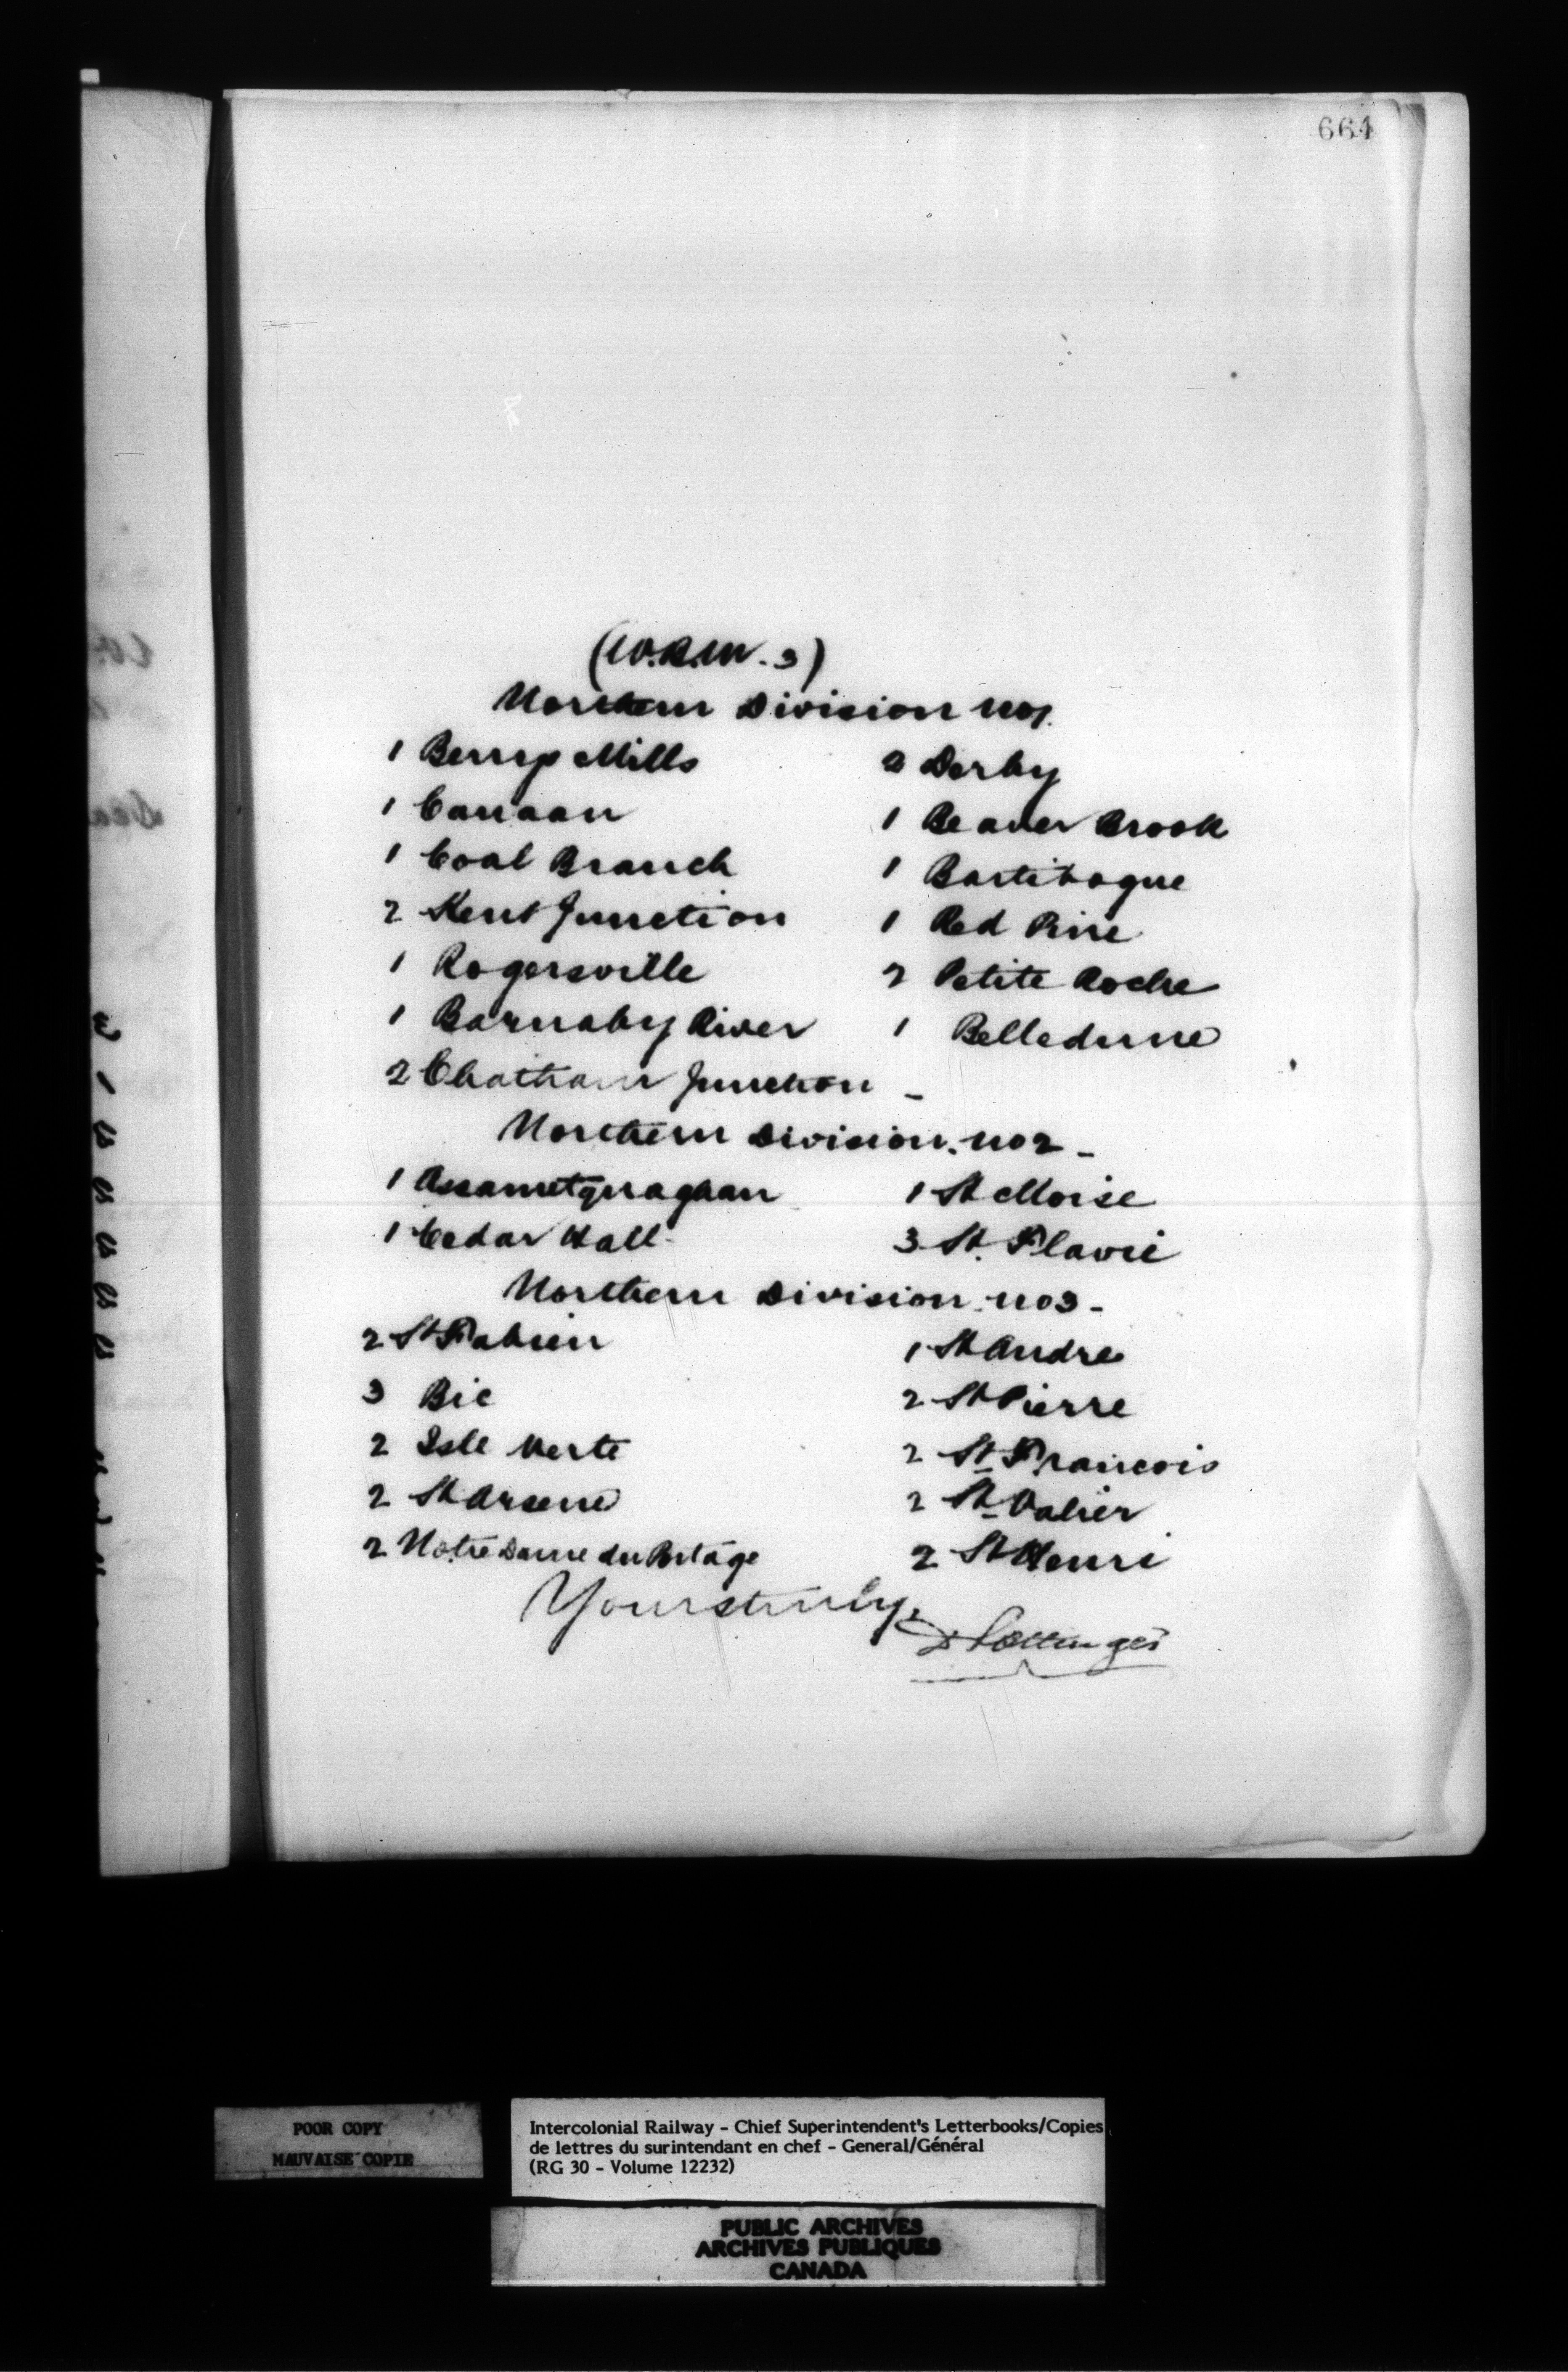 664
(W.R.M. 3)
Northern Division No1.
1 Berrys Mills 2 Derby
1 Canaan 1 Beaver Brook
1 Coal Branch 1 Bartibogue
2 Kent Junction 1 Red Pine
1 Rogersville 2 Petite Roche
1 Barnaby River 1 Belledune
2 Chatham Junction -
Northern Division. No2 -
1 Assametquaghan 1 St Moise
1 Cedar Hall 3 St. Flavie
Northern Division. No3 -
2 St Fabien 1 St Andre
3 Bic 2 St Pierre
2 Isle Verte 2 St Francois
2 St Arsene 2 St Valier
2 Notre Dame du Portage 2 St Henri
Yours truly,
D Pottinger
POOR COPY
MAUVAISE COPIE
Intercolonial Railway - Chief Superintendent's Letterbooks/Copies
de lettres du surintendant en chef - General/Général
(RG 30 - Volume 12232)
PUBLIC ARCHIVES
ARCHIVES PUBLIQUES
CANADA